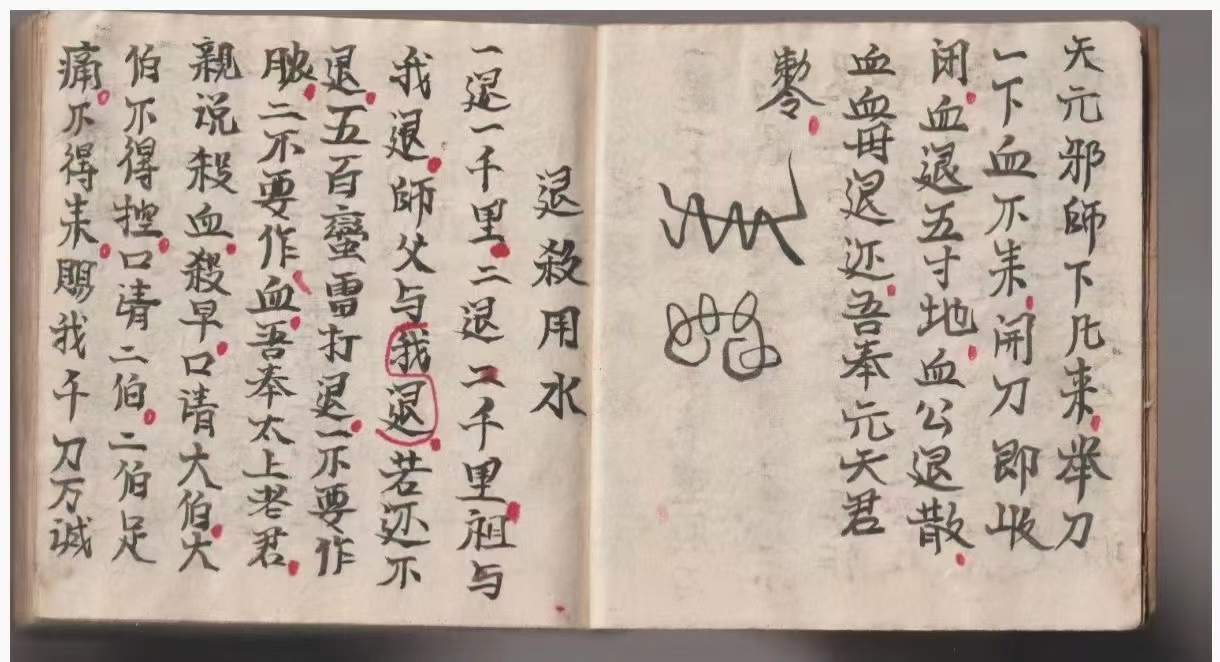 天元邪師下凡来举刀
一下血不来開刀即收
闭血退五寸地血公退散
血血毋退还吾奉元天君
勅令
退殺用水
一退一千里二退二千里祖与
我退師父与我退若还不
退五百蠻雷打退一不要作
膿二不要作血吾奉太上老君
親说殺血殺早口请大伯大
伯不得控口请二伯二伯足
痛不得来賜我千刀万